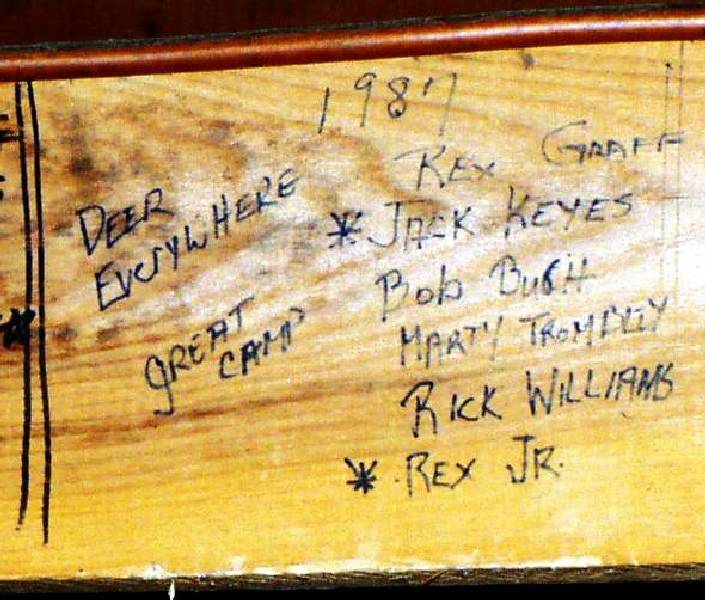 1987
DEER
EVERYWHERE
GREAT
CAMP
REX GRAFF
* JACK KEYES
Bob BUSH
MARTY TROMBLEY
RICK WILLIAMS
* REX JR.